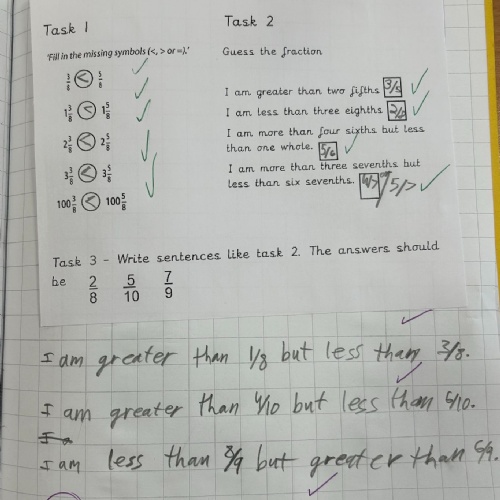 Task 1
'Fill in the missing symbols (<, > or =).'
3/8 < 5/8
1 3/8 < 1 5/8
2 3/8 < 2 5/8
3 3/8 < 3 5/8
100 3/8 < 100 5/8
Task 2
Guess the fraction
I am greater than two fifths 3/5
I am less than three eighths
I am more than four sixths but less
than one whole. 5/6
I am more than three sevenths but
less than six sevenths. 4/7 5/7
Task 3 - Write sentences like task 2. The answers should
be 2/8 5/10 7/9
I am greater than 1/8 but less than 3/8.
I am greater than 4/10 but less than 6/10.
I am less than but greater than 6/9.